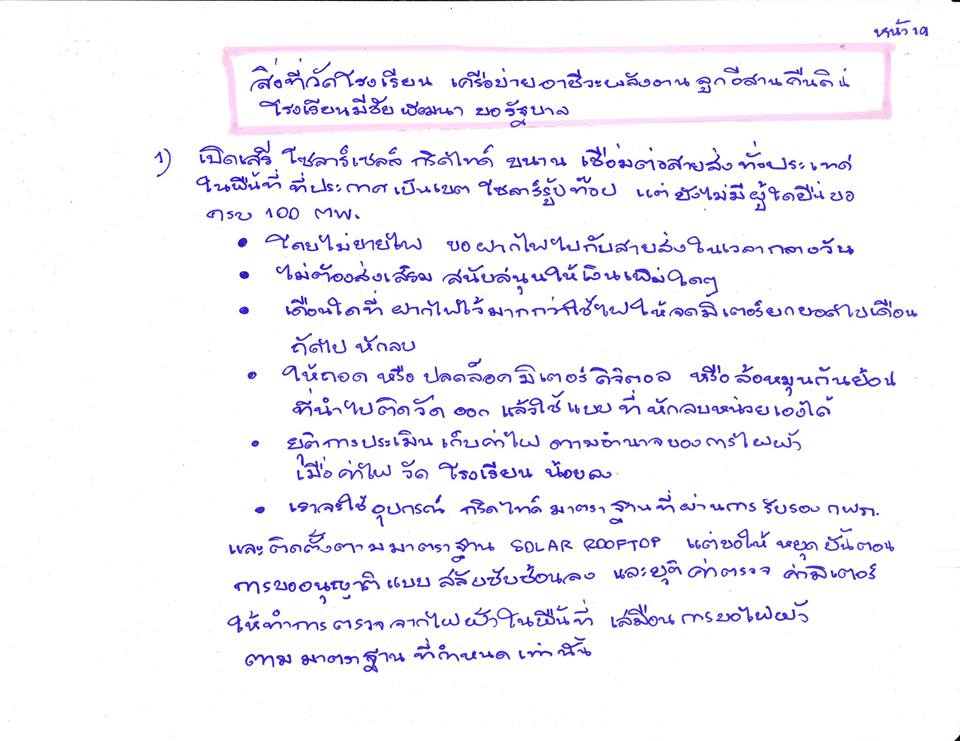 หน้า 19
สิ่งที่วัดโรงเรียน เครือข่ายอาชีวะพลังงาน ลูกอีสานคืนถิ่น
โรงเรียนมีชัยพัฒนา ขอรัฐบาล
1) เปิดเสรี โซลาร์เซลล์ กริดไทด์ ขนาน เชื่อมต่อสายส่ง ทั่วประเทศ
ในพื้นที่ ที่ประกาศเป็นเขต โซลาร์รู้ปท๊อป แต่ ยังไม่มีผู้ใดยื่นขอ
ครบ 100 MW.
• โดยไม่ขายไฟ ขอฝากไฟไปกับสายส่งในเวลากลางวัน
• ไม่ต้องส่งเสริม สนับสนุนให้เงินเพิ่มใดๆ
• เดือนใดที่ ฝากไฟไว้มากกว่าใช้ไฟ ให้จดมิเตอร์ยกยอดไปเดือน
ถัดไป หักลบ
• ให้ถอด หรือ ปลดล็อค มิเตอร์ ดิจิตอล หรือ ล้อหมุนกันย้อน
ที่นำไปติดวัด ออก แล้วใช้แบบ ที่ หักลบหน่วยเองได้
• ยุติการประเมิน เก็บค่าไฟ ตามอำนาจของการไฟฟ้า
เมื่อ ค่าไฟ วัด โรงเรียน น้อยลง
• เราจะใช้อุปกรณ์ กริดไทด์ มาตราฐานที่ผ่านการ รับรอง กฟภ.
และติดตั้งตามมาตราฐาน SOLAR ROOFTOP แต่ขอให้ หยุดขั้นตอน
การขออนุญาติแบบ สลับซับซ้อนลง และยุติ ค่าตรวจ ค่ามิเตอร์
ให้ทำการตรวจจากไฟฟ้าในพื้นที่ เสมือนการขอไฟฟ้า
ตามมาตราฐาน ที่กำหนดเท่านั้น